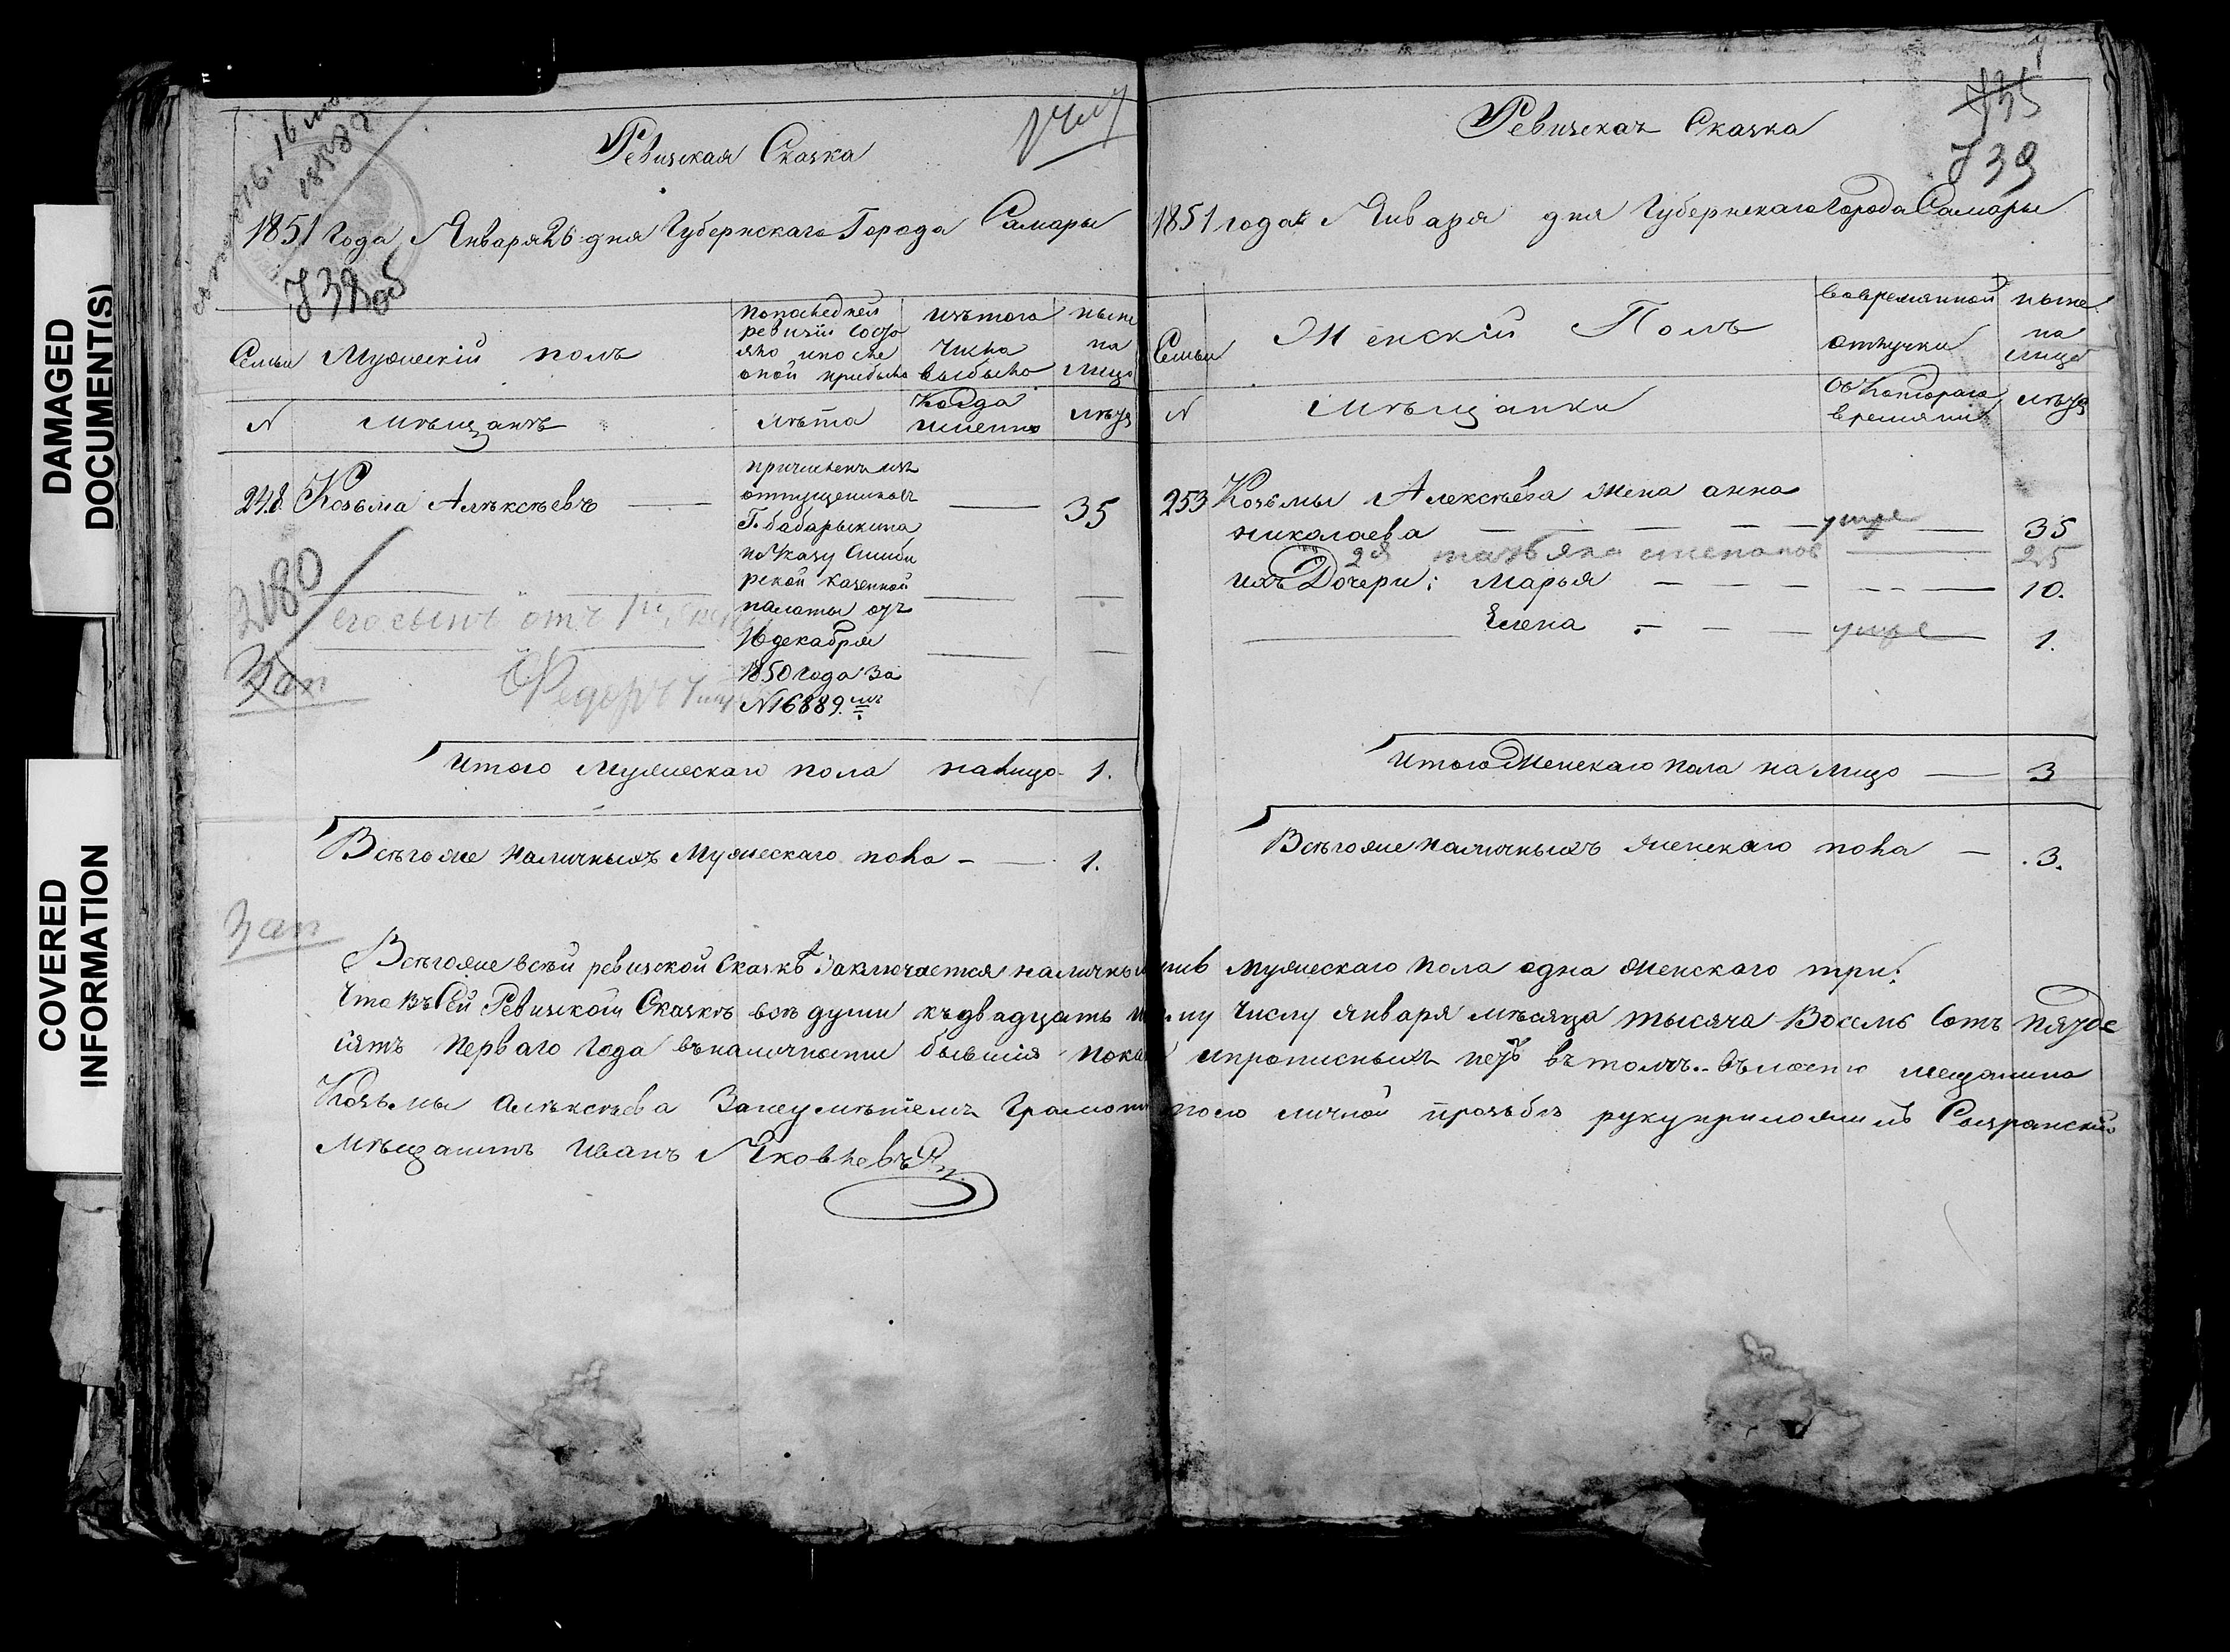 DAMAGED
DOCUMENT(S)
COVERED
INFORMATION
16
1858
Ревизская Сказка
1851 Года Января 26 дня Губернскаго Города Самары
739 об
Семьи
Мужескій полъ
по последней
ревизіи состо
яло и после
оной прибыло
изътого
числа
выбыло
ныне
на
лицо
N
Мѣщанъ
лѣта
Когда
именно
лѣта
248
Козьма Алѣксѣевъ
причисленъ изъ
отпущениковъ
Г. бабарыкина
по Указу Симби
рской казенной
палаты отъ
16 декабря
1850 года за
N 16889.мъ
35
2180
Зап
его сынъ отъ 1й
Федоръ
Итого Мужескаго пола налицо 1.
Всѣгоже наличныхъ Мужескаго пола - 1.
Зап
Ревизская Сказка
735
739
1851 года Января дня Губернскаго Города Самары
Семьи
Женскій Полъ
вовремянной
отлучки
ныне
на
лицо
N
Мѣщанки
съ Котораго
времяни
лѣта
253
Козьмы Алексѣева жена анна
николаева умре 35
2я татьяна степанов 25
ихъ Дочери: Марья 10.
Елена умре 1.
Итого Женскаго пола на лицо 3
Всѣгоже наличныхъ женскаго пола .3.
Всѣгоже всѣй ревизской Сказкѣ Заключается мужескаго пола одна женскаго три:
Что въ Сей Ревизской Сказкѣ всѣ души къ двадцать числу января мѣсяца тысяча Восемь Сотъ пятде
сятъ перваго года въналичности бывшія и прописныхъ нетъ въ томъ мещанина
Козьмы Алѣксѣева Занеумѣтемъ Грамоте личной прозьбѣ руку приложилъ Сызранский
Мѣщанинъ Иванъ Яковлевъ